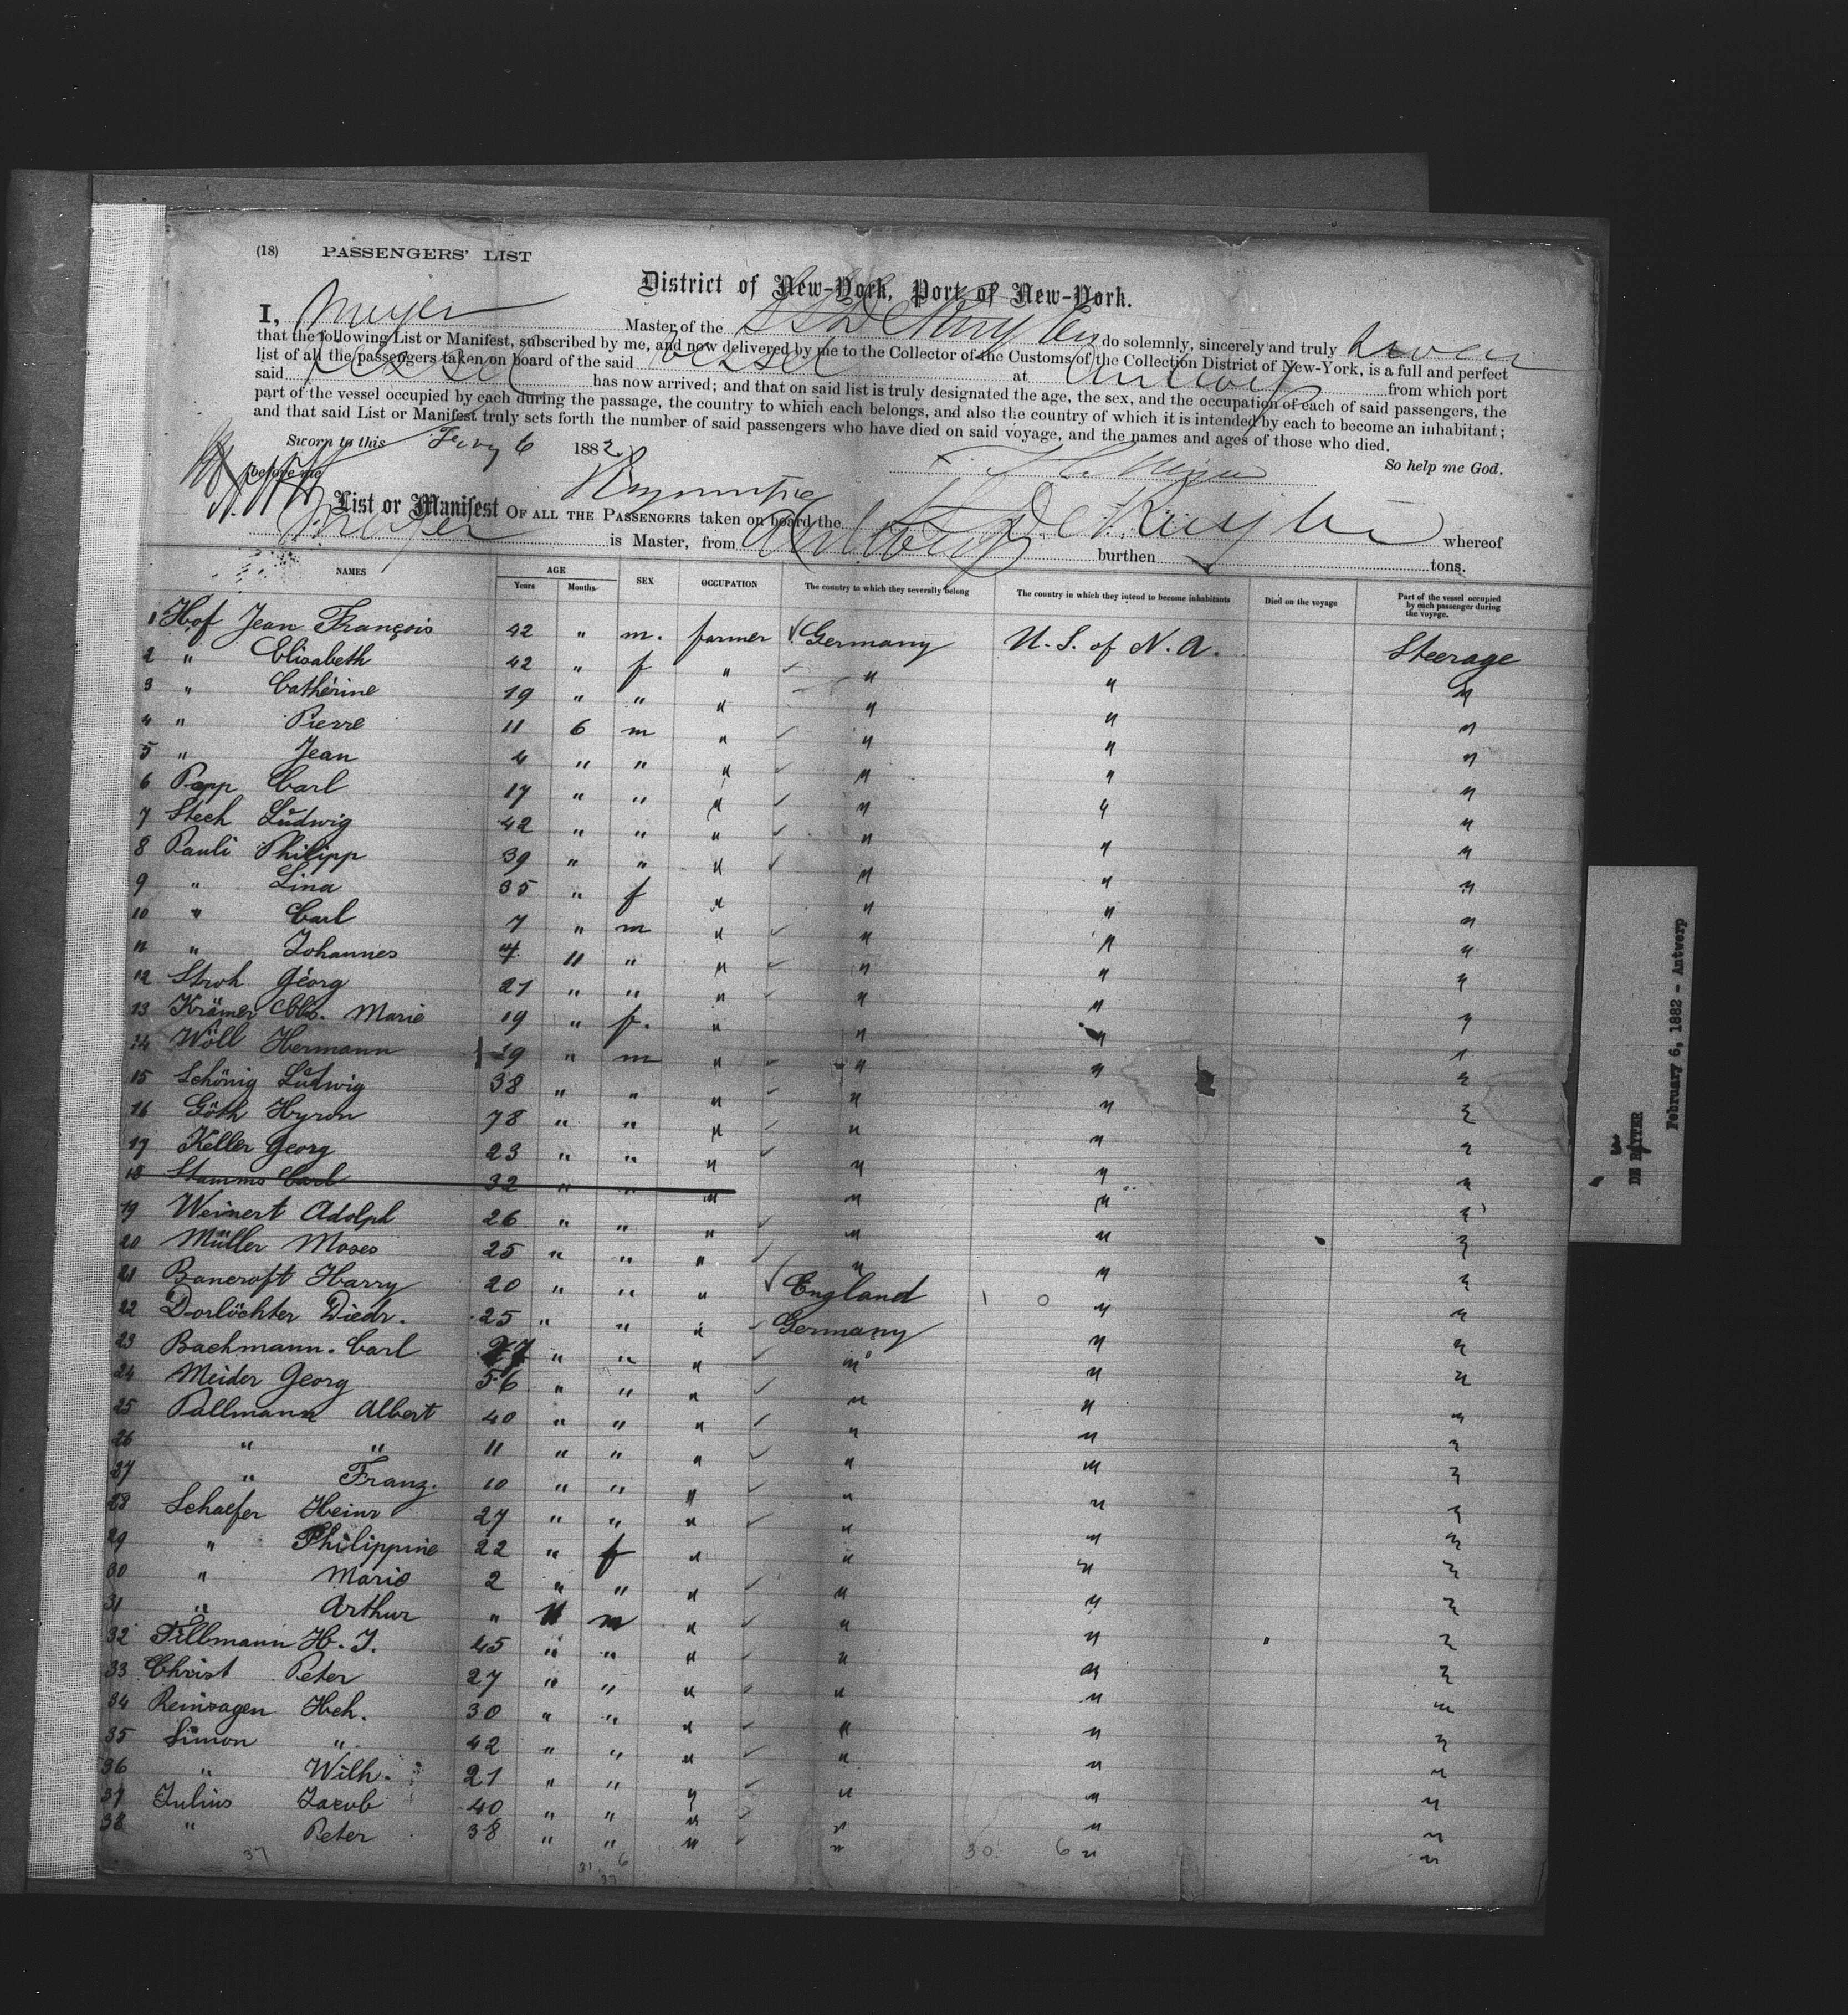 (18) PASSENGERS' LIST
District of New-York, Port of New-York.
I, Meyer Master of the SS De Ruyter do solemnly, sincerely and truly swear
that the following List or Manifest, subscribed by me, and now delivered by me to the Collector of the Customs of the Collection District of New-York, is a full and perfect
list of all the passengers taken on board of the said vessel at Antwerp from which port
said vessel has now arrived; and that on said list is truly designated the age, the sex, and the occupation of each of said passengers, the
part of the vessel occupied by each during the passage, the country to which each belongs, and also the country of which it is intended by each to become an inhabitant;
and that said List or Manifest truly sets forth the number of said passengers who have died on said voyage, and the names and ages of those who died.
Sworn to this Feby 6 1882 So help me God.
before me
List or Manifest OF ALL THE PASSENGERS taken on board the SS De Ruyter whereof
Meyer is Master, from Antwerp burthen tons.
NAMES AGE Years Months SEX OCCUPATION The country to which they severally belong The country in which they intend to become inhabitants Died on the voyage Part of the vessel occupied by each passenger during the voyage.
1 Hof Jean François 42 " m. farmer Germany U. S. of N. A. Steerage
2 " Elisabeth 42 " f " " " "
3 " Cathérine 19 " " " " " "
4 " Pierre 11 6 m " " " "
5 " Jean 4 " " " " " "
6 Papp Carl 17 " " " " " "
7 Stech Ludwig 42 " " " " " "
8 Pauli Philipp 39 " " " " " "
9 " Lina 35 " f " " " "
10 " Carl 7 " m " " " "
11 " Johannes 11 " " " " "
12 Stroh Georg 21 " " " " " "
13 Krämer Marie 19 " f. " " " "
14 Wöll Hermann 19 " m " " " "
15 Schönig Ludwig 38 " " " " " "
16 Göth Hyron 78 " " " " " "
17 Keller Georg 23 " " " " " "
18 Stamms Carl 32 " " " " " "
19 Weinert Adolph 26 " " " " " "
20 Müller Moses 25 " " " " " "
21 Bancroft Harry 20 " " " England " "
22 Dorlöchter Diedr. 25 " " " Germany " "
23 Bachmann. Carl 27 " " " " " "
24 Meider Georg 56 " " " " " "
25 Pallmann Albert 40 " " " " " "
26 " " 11 " " " " " "
27 " Franz. 10 " " " " " "
28 Schaefer Heinr 27 " " " " " "
29 " Philippine 22 " f " " " "
30 " Marie 2 " " " " " "
31 " Arthur " 11 m " " " "
32 Tillmann H. J. 45 " " " " " "
33 Christ Peter 27 " " " " " "
34 Reinsagen Hch. 30 " " " " " "
35 Simon " 42 " " " " " "
36 " Wilh. 21 " " " " " "
37 Julius Jacob 40 " " " " " "
38 " Peter 38 " " " " " "
37 31 6 37 30 6
DE RUYTER
February 6, 1882 - Antwerp